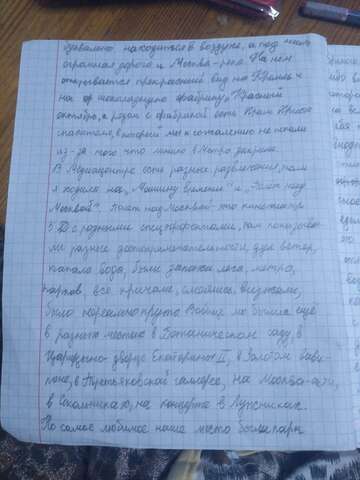 буквально находится в воздухе, а под ним
огромная дорога и Москва-река. На нем
открывается прекрасный вид на Кремль и
на шоколадную фабрику, Красный
октябрь, а рядом с фабрикой есть Храм Христа
спасителя, в который мы к сожалению не попали
из-за того что линию в метро закрыли.
В Медиацентре есть разные развлечения, мама
и я ходили на „Машину времени" и „Полет над
Москвой". Полет над Москвой-это кинотеатр
5D с разными спецэффектами, там показыва-
ли разные достопримечательности, дул ветер,
капала вода, были запахи леса, метро,
парков, все кричали, смеялись, визжали,
было нереально круто. Вообще мы были ещё
в разных местах в Ботаническом саду, в
Царицыно-дворце Екатерины II, в Золотом Вави-
лоне, в Третьяковской галерее, на Москва-сити,
в Сокольниках, на концерте в Лужниках.
Но самое любимое наше место были парк